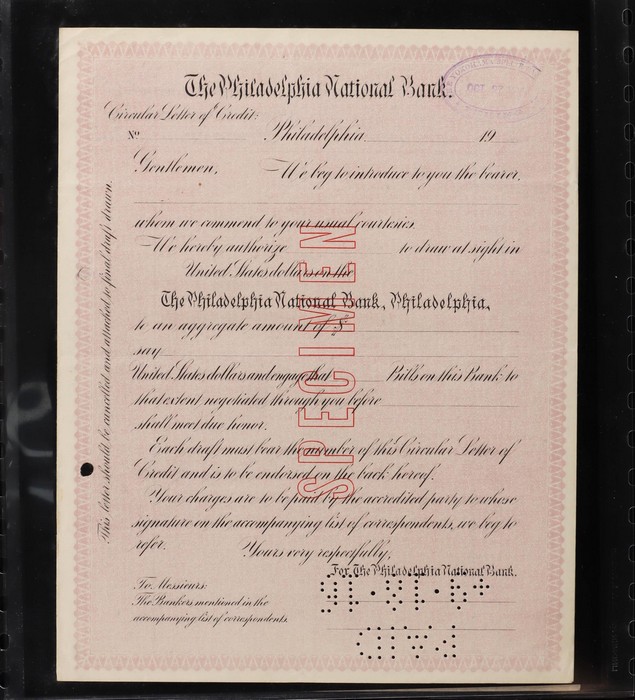 The Philadelphia National Bank.
OCT
Circular Letter of Credit:
No Philadelphia, 19
Gentlemen, We beg to introduce to you the bearer,
whom we commend to your usual courtesies.
We hereby authorize to draw at sight in
United States dollars on the
The Philadelphia National Bank, Philadelphia,
to an aggregate amount of $
say
United States dollars and engage that Bills on this Bank to
that extent negotiated through you before
shall meet due honor.
Each draft must bear the number of this Circular Letter of
Credit and is to be endorsed on the back hereof.
Your charges are to be paid by the accredited party to whose
signature on the accompanying list of correspondents, we beg to
refer. Yours very respectfully,
For The Philadelphia National Bank.
To Messieurs:
The Bankers mentioned in the
accompanying list of correspondents.
This letter should be cancelled and attached to final draft drawn.
SPECIMEN